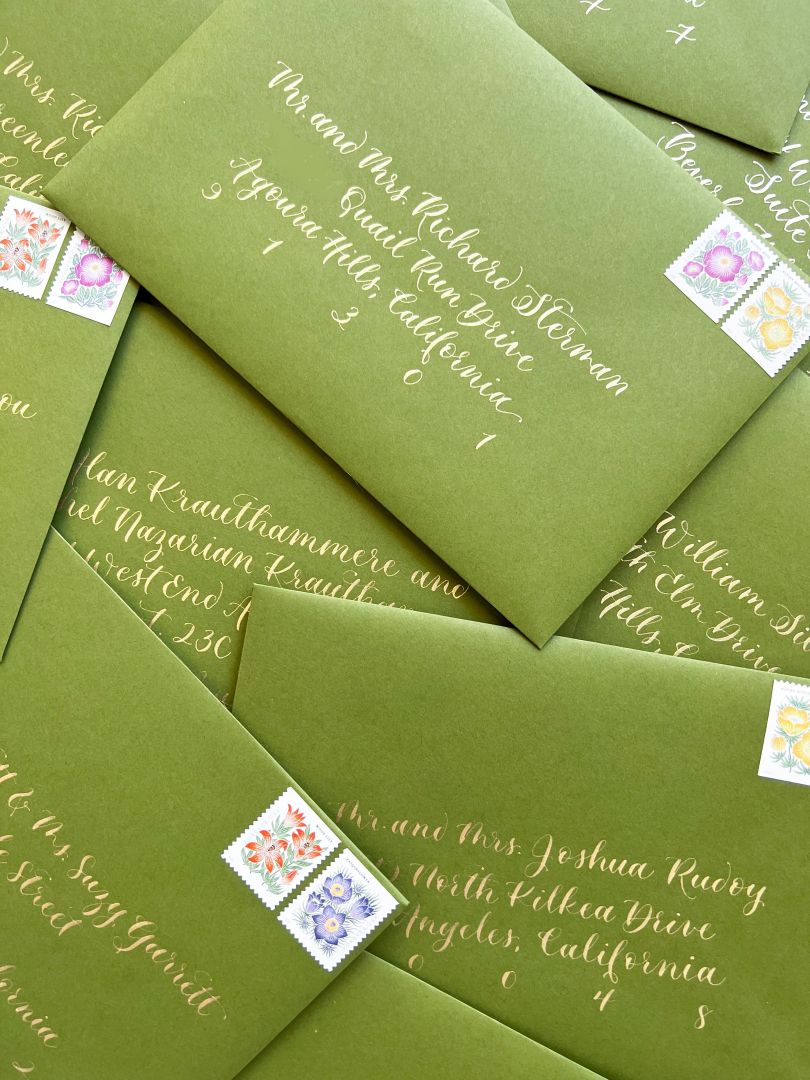 Mrs.
California
7
Mr. and Mrs. Richard Sterman
Quail Run Drive
Agoura Hills, California
9 1 3 0 1
Suite
ou
Alan Krauthammere and
Nazarian
West End
23C
William
Elm Drive
Hills,
& Ms. Suzy Gerrett
Street
2
Mr. and Mrs. Joshua Rudoy
North Kilkea Drive
Angeles, California
0 0 4 8